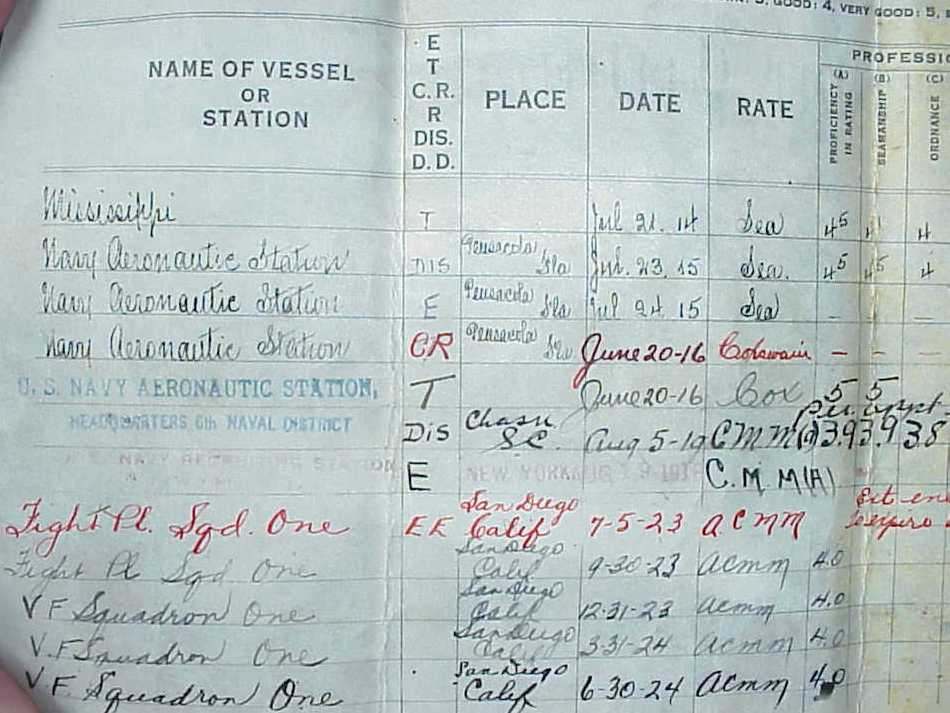 GOOD: 4, VERY GOOD: 5,
NAME OF VESSEL OR STATION E T C.R. R DIS. D.D. PLACE DATE RATE PROFESSIO
(A) PROFICIENCY IN RATING (B) SEAMANSHIP (C) ORDNANCE
Mississippi T Jul 21. 14 Sea 4 5 4
Navy Aeronautic Station DIS Pensacola Fla Jul. 23. 15 Sea. 4 5 4 5 4
Navy Aeronautic Station E Pensacola Fla Jul 24. 15 Sea – – –
Navy Aeronautic Station CR Pensacola Fla June 20-16 Coxswain – – –
U. S. NAVY AERONAUTIC STATION, T June 20-16 Cox 5 5
HEADQUARTERS 6th NAVAL DISTRICT Dis Chasn S.C. Aug 5-19 CMM(A) 3.9 3.9 3.8
Per. appt
NAVY RECRUITING STATION E NEW YORK AUG 19 191 C.M M(A)
Fight Pl. Sqd. One EE San Diego Calif 7-5-23 ACMM
Fight Pl Sqd One San Diego Calif 9-30-23 ACMM 4.0
V F Squadron One San Diego Calif 12-31-23 ACMM 4.0
V. F Squadron One San Diego Calif 3-31-24 ACMM 4.0
V. F. Squadron One San Diego Calif 6-30-24 ACMM 4.0